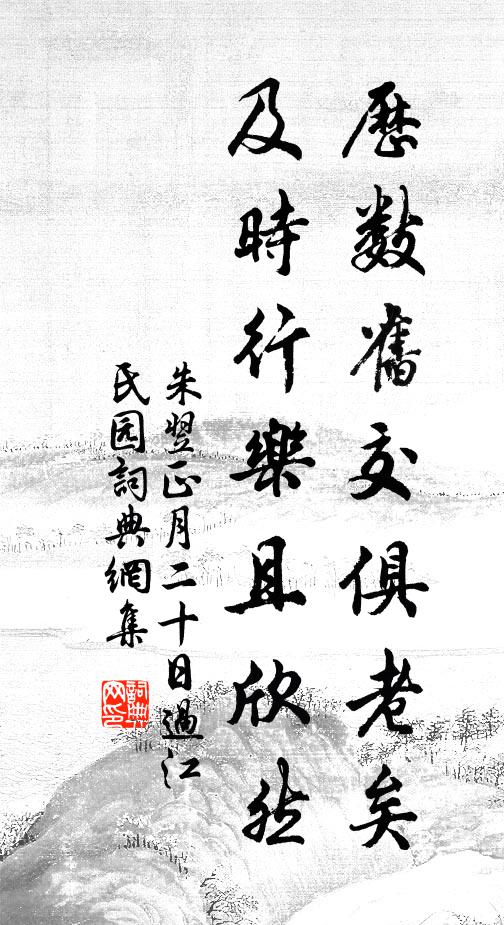 歷數舊交俱老矣
及時行樂且欣然
朱翌正月二十日過江
民国詞典網集
詞典
网印